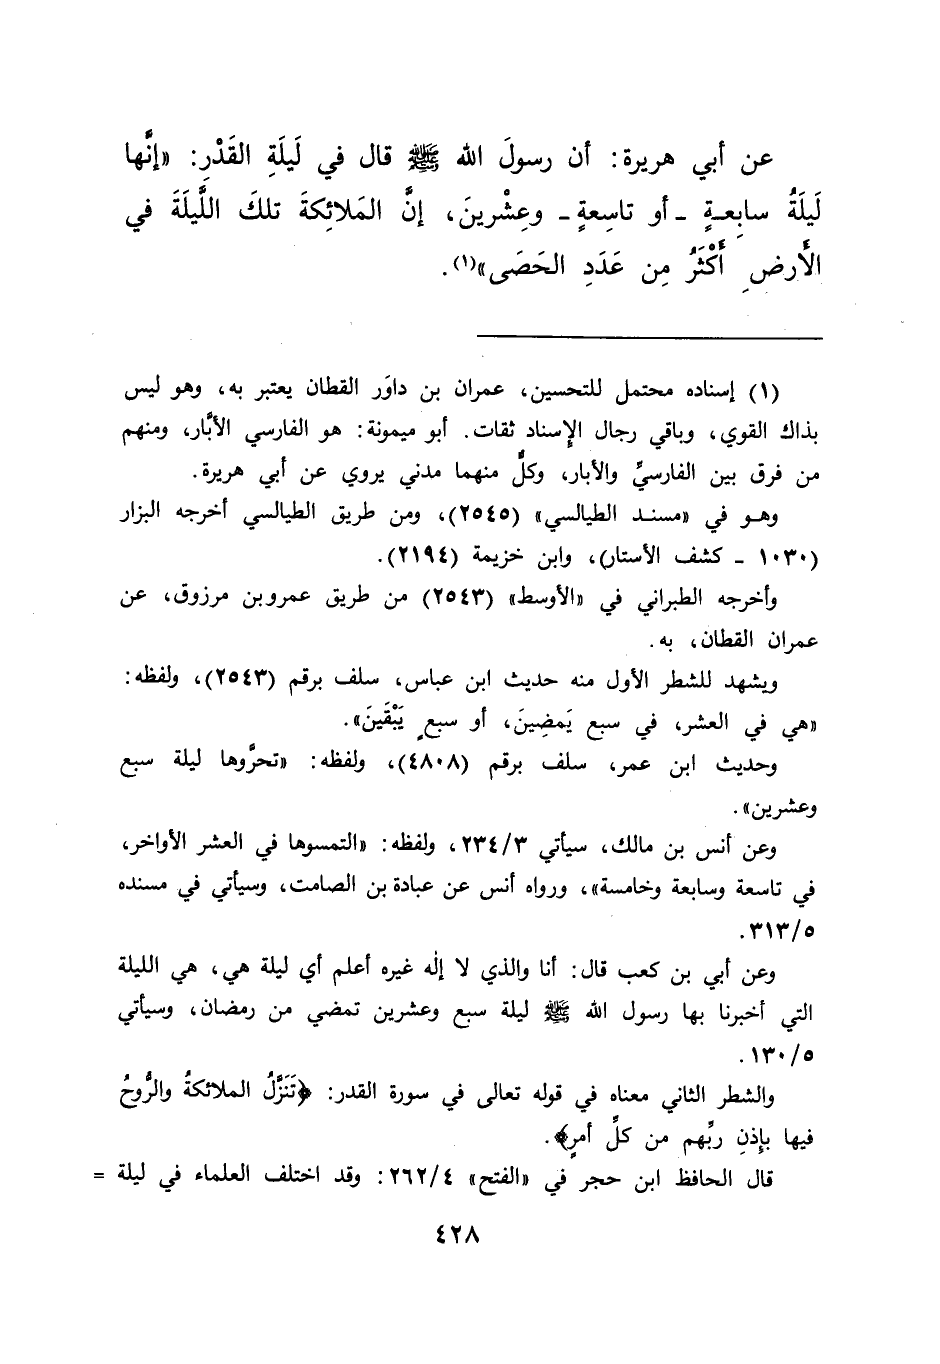 عن أبي هريرة: أن رسولَ الله ﷺ قال في لَيلَةِ القَدْرِ: «إنَّها
لَيلَةُ سابِعةٍ ـ أو تاسِعةٍ ـ وعِشْرينَ، إنَّ المَلائِكةَ تلكَ اللَّيلَةَ في
الأَرضِ أَكْثَرُ مِن عَدَدِ الحَصَى»(١).
(١) إسناده محتمل للتحسين، عمران بن داوَر القطان يعتبر به، وهو ليس
بذاك القوي، وباقي رجال الإسناد ثقات. أبو ميمونة: هو الفارسي الأبَّار، ومنهم
من فرق بين الفارسيِّ والأبار، وكلٌّ منهما مدني يروي عن أبي هريرة.
وهو في «مسند الطيالسي» (٢٥٤٥)، ومن طريق الطيالسي أخرجه البزار
(١٠٣٠ ـ كشف الأستار)، وابن خزيمة (٢١٩٤).
وأخرجه الطبراني في «الأوسط» (٢٥٤٣) من طريق عمرو بن مرزوق، عن
عمران القطان، به.
ويشهد للشطر الأول منه حديث ابن عباس، سلف برقم (٢٥٤٣)، ولفظه:
«هي في العشر، في سبع يَمضِينَ، أو سبعٍ يَبْقَينَ».
وحديث ابن عمر، سلف برقم (٤٨٠٨)، ولفظه: «تحرَّوها ليلة سبع
وعشرين».
وعن أنس بن مالك، سيأتي ٢٣٤/٣، ولفظه: «التمسوها في العشر الأواخر،
في تاسعة وسابعة وخامسة»، ورواه أنس عن عبادة بن الصامت، وسيأتي في مسنده
٣١٣/٥.
وعن أبي بن كعب قال: أنا والذي لا إلٰه غيره أعلم أي ليلة هي، هي الليلة
التي أخبرنا بها رسول الله ﷺ ليلة سبع وعشرين تمضي من رمضان، وسيأتي
١٣٠/٥.
والشطر الثاني معناه في قوله تعالى في سورة القدر: ﴿تَنَزَّلُ الملائكةُ والرُّوحُ
فيها بإِذنِ ربِّهم من كلِّ أمرٍ﴾.
قال الحافظ ابن حجر في «الفتح» ٢٦٢/٤: وقد اختلف العلماء في ليلة =
٤٢٨